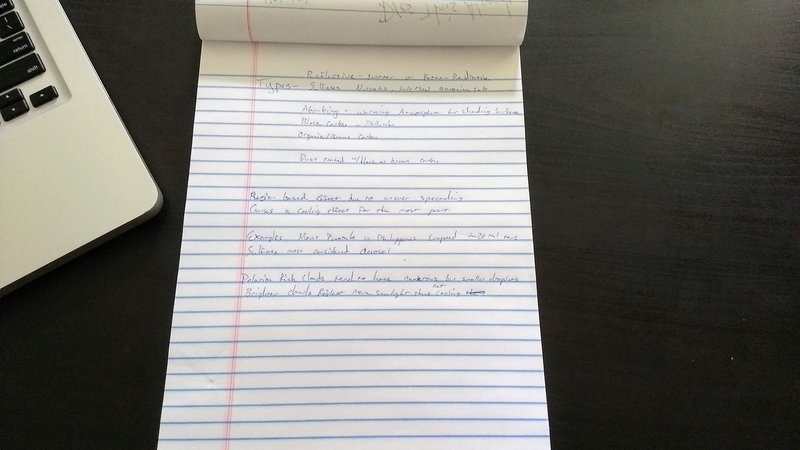 Reflective - scatter or Return Radiation
Types - Sulfates Nitrates, ammonium salt
Absorbing - warming Atmosphere but shading Surface
Black Carbon - Pollution
Organic/Brown Carbon
Dust coated w/black or brown carbon
Region based effect due to uneven spreading
Causes a cooling effect for the most part.
Examples Mount Pinatubo in Philippines Dumped 20 Mil tons
Sulfate most considered aerosol
Rich Clouds tend to have numerous but smaller droplets
Brighter clouds Reflect more sunlight thus net cooling
return
shift